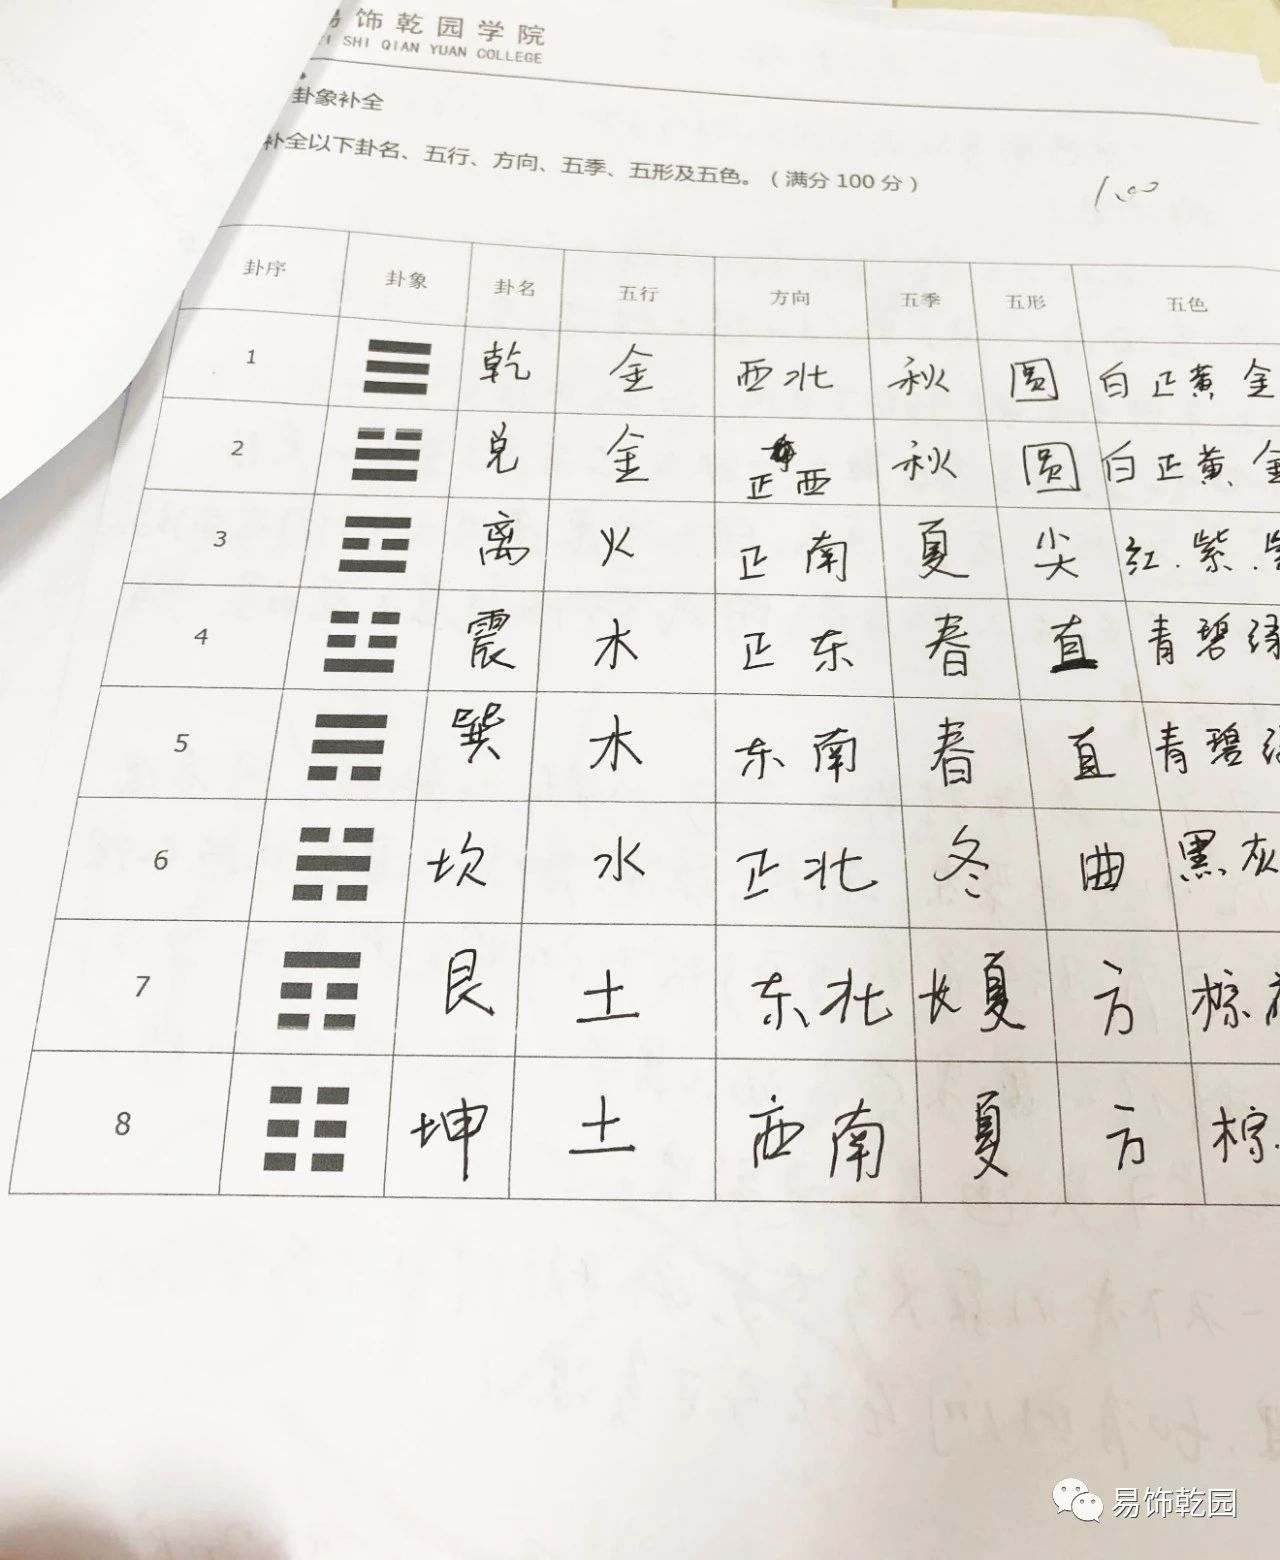 易饰乾园学院
YI SHI QIAN YUAN COLLEGE
卦象补全
补全以下卦名、五行、方向、五季、五形及五色。（满分 100 分）
100
卦序 卦象 卦名 五行 方向 五季 五形 五色
1 乾 金 西北 秋 圆 白 正黄 金
2 兑 金 正西 秋 圆 白 正黄 金
3 离 火 正南 夏 尖 红.紫.
4 震 木 正东 春 直 青 碧 绿
5 巽 木 东南 春 直 青 碧 绿
6 坎 水 正北 冬 曲 黑 灰
7 艮 土 东北 长夏 方 棕.
8 坤 土 西南 夏 方 棕.
易饰乾园